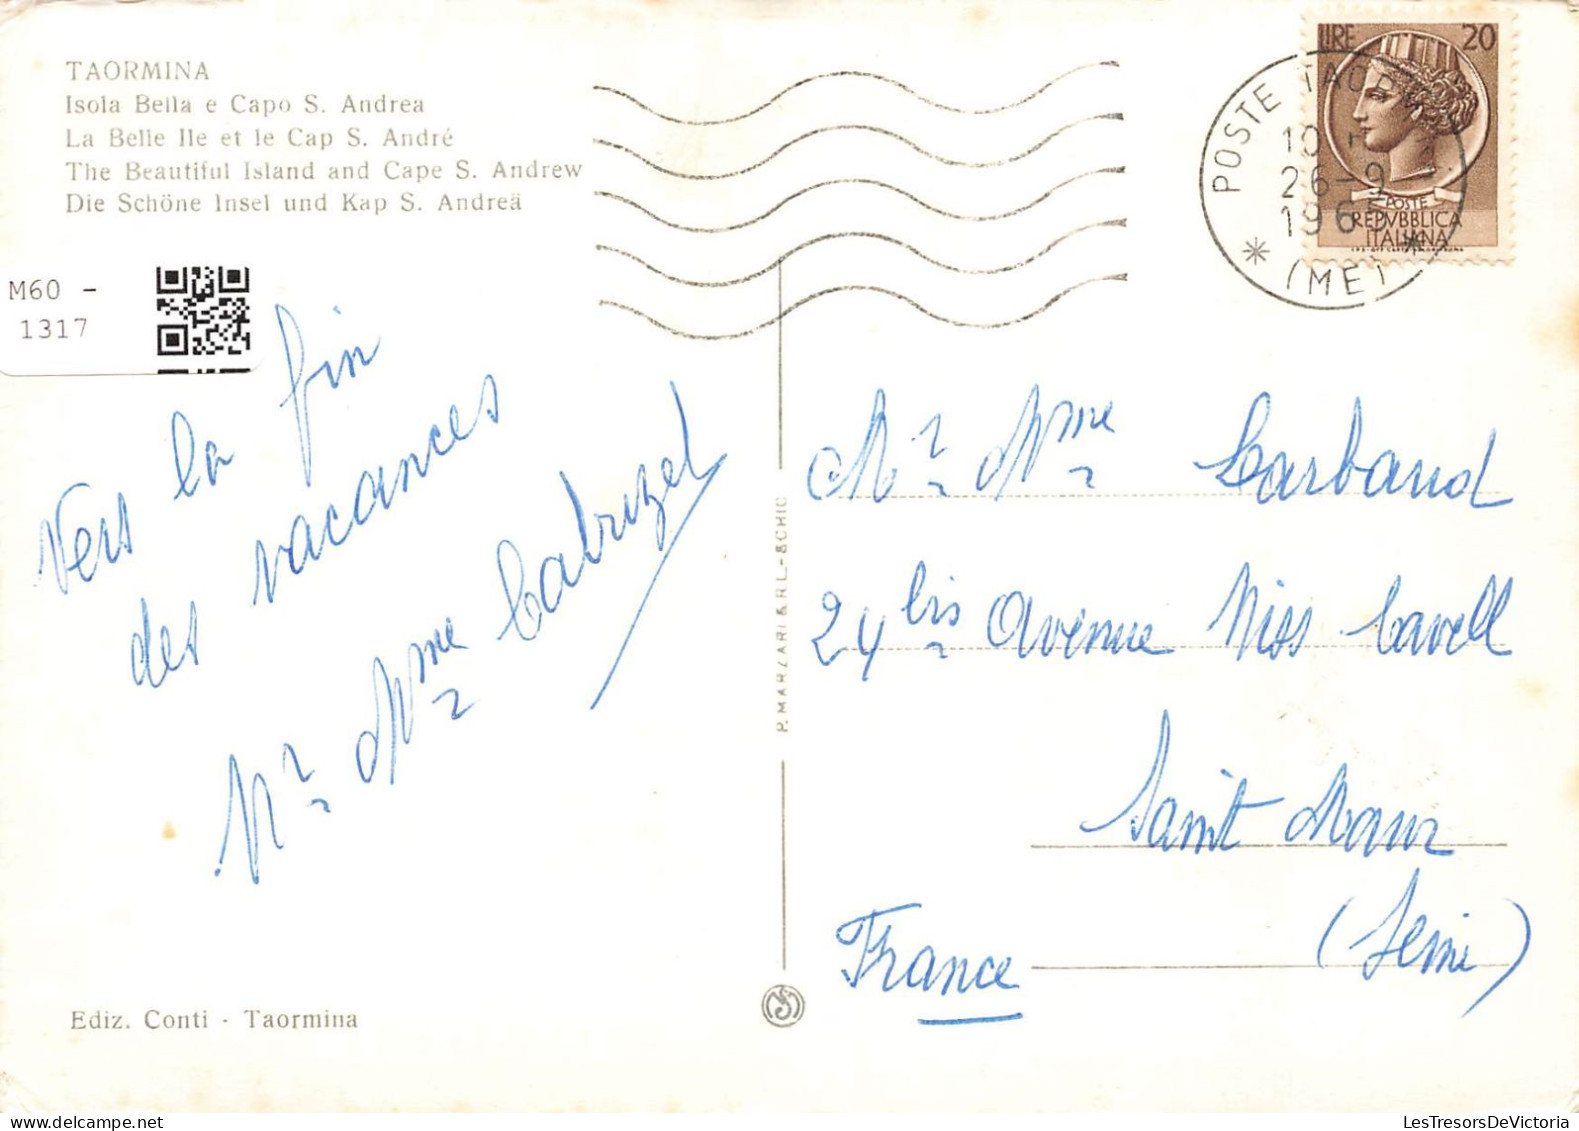 TAORMINA
Isola Bella e Capo S. Andrea
La Belle Ile et le Cap S. André
The Beautiful Island and Cape S. Andrew
Die Schöne Insel und Kap S. Andreä
M60 -
1317
LIRE 20
POSTE
REPVBBLICA
ITALIANA
POSTE TAORM
10
26-9
196
(ME)
Vers la fin
des vacances
Mr Mme Cabrizel
P. MARZARI S.R.L.-SCHIO
Mr Mme Carbaud
24 bis Avenue Miss Cavell
Saint Maur
(Seine)
France
Ediz. Conti - Taormina
LesTresorsDeVictoria.com
www.delcampe.net
LesTresorsDeVictoria